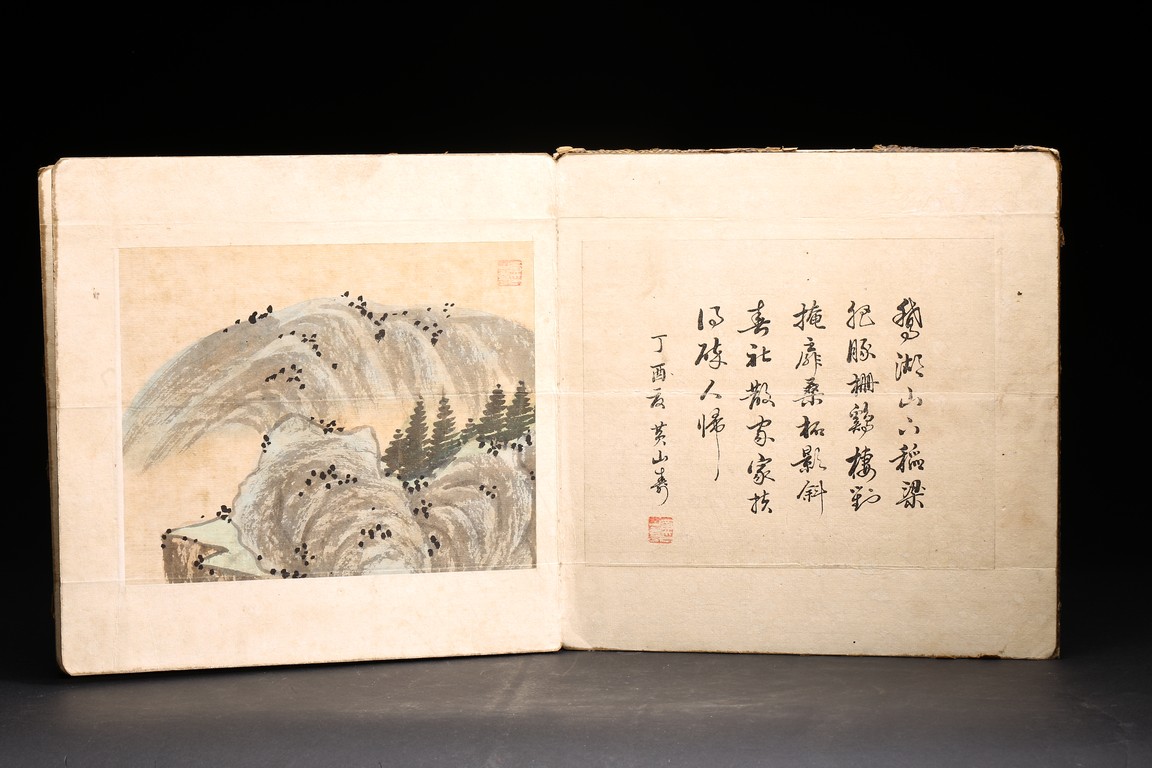 鵞湖山下稻粱
肥豚柵鷄棲對
掩扉桑柘影斜
春社散家家扶
得醉人歸
丁酉夏黄山壽